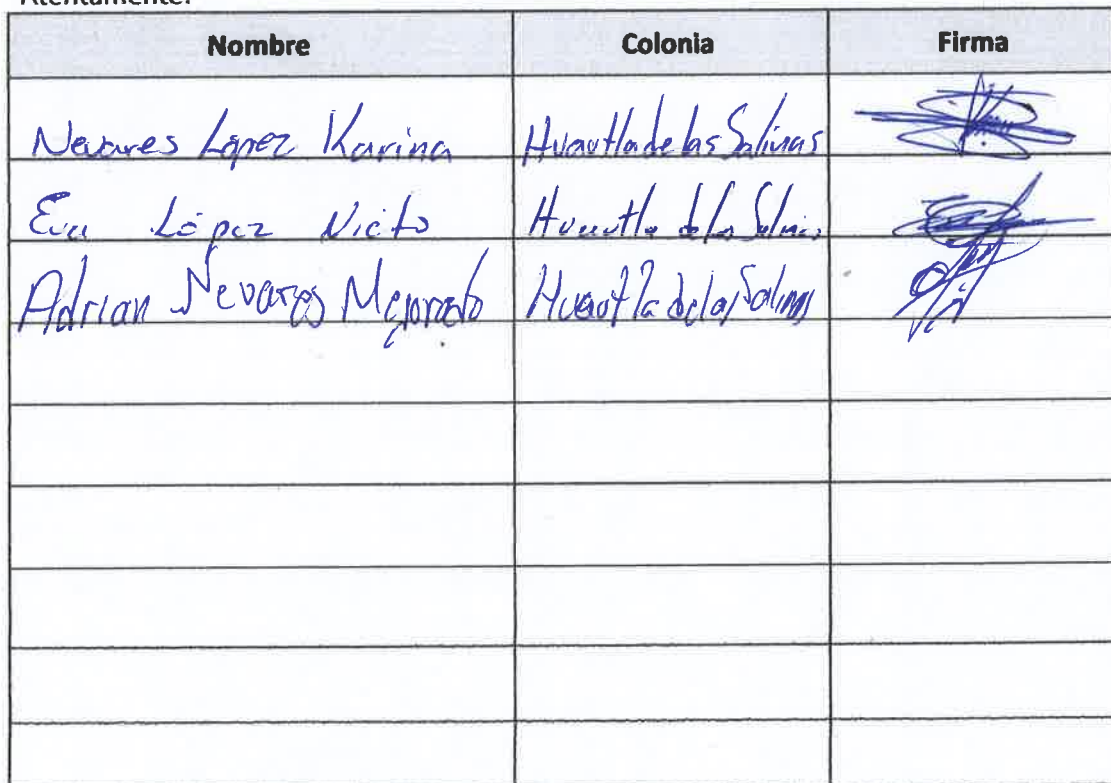 Atentamente.
Nombre Colonia Firma
Nevares López Karina Huautla de las Salinas
Eva López Nieto Huautla de las Salinas
Adrian Nevares Huautla de las Salinas